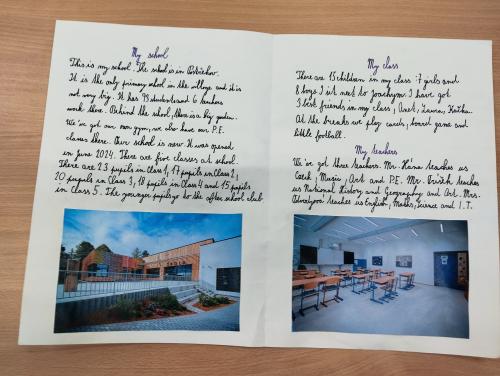 My school
This is my school. The school is in
It is the only primary school in the village and it is
not very big. It has 93 students and 6 teachers
work there. Behind the school, there is a big garden.
We've got our own gym, we also have our P.E.
classes there. Our school is new. It was opened
in June 2024. There are five classes at school.
There are 23 pupils in Class 1, 17 pupils in Class 2,
20 pupils in Class 3, 18 pupils in Class 4 and 15 pupils
in Class 5. The younger pupils go to the after school club
My class
There are 15 children in my class: 7 girls and
8 boys I sit next to Joachym. I have got
3 best friends in my class, Anet, Laura, Katka.
At the breaks we play cards, board game and
little football.
My teachers
We've got three teachers. Mrs. Hana teaches us
Czech, Music, Art and P.E. Mr. teaches
us National History and Geography and Art. Mrs.
teaches us English, Maths, Science and I.T.